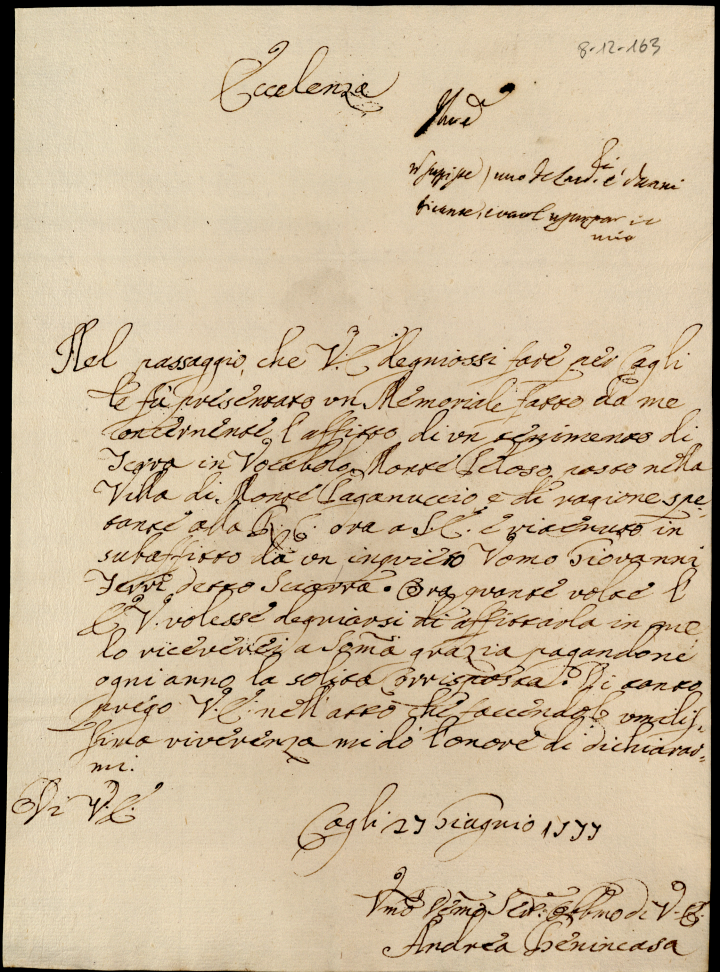 8-12-163
Eccelenza
uno de
Nel passaggio, che V. E. degniossi fare per Cagli
le fù presentato un Memoriale fatto da me
concernente l'affitto di un tenimento di
Terra in Vocabolo Monte Peloso, posto nella
Villa di Monte Paganuccio, e di ragione spe-
tante alla R. C. ora a S. E. è ritenuto in
subaffitto da un inquieto Uomo Giovanni
Terri detto Sciarra. Ora quante volte l'
E. V. volesse degniarsi di affittarla in me
lo riceverei a Somã grazia pagandone
ogni anno la solita corrisposta. Di tanto
prego V. E. nell'atto che facendole umilis-
sima riverenza mi dò l'onore di dichiarar-
mi.
Di V. E.
Cagli 27 Giugnio 1777
Umõ Devmõ Serv. Obbmo di V. E.
Andrea Benincasa